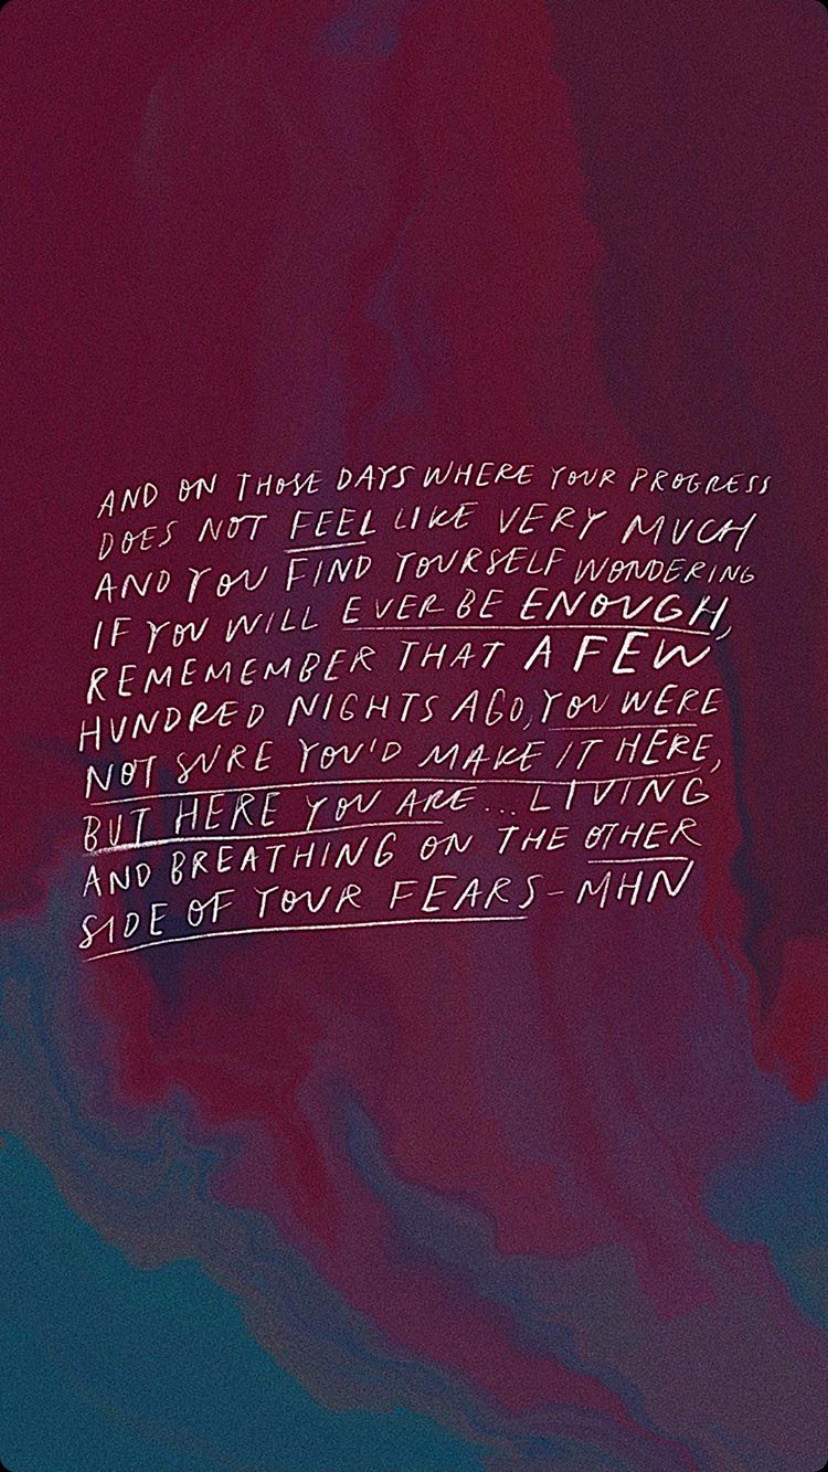 AND ON THOSE DAYS WHERE YOUR PROGRESS
DOES NOT FEEL LIKE VERY MUCH
AND YOU FIND YOURSELF WONDERING
IF YOU WILL EVER BE ENOUGH,
REMEMEMBER THAT A FEW
HUNDRED NIGHTS AGO, YOU WERE
NOT SURE YOU'D MAKE IT HERE,
BUT HERE YOU ARE... LIVING
AND BREATHING ON THE OTHER
SIDE OF YOUR FEARS - MHN